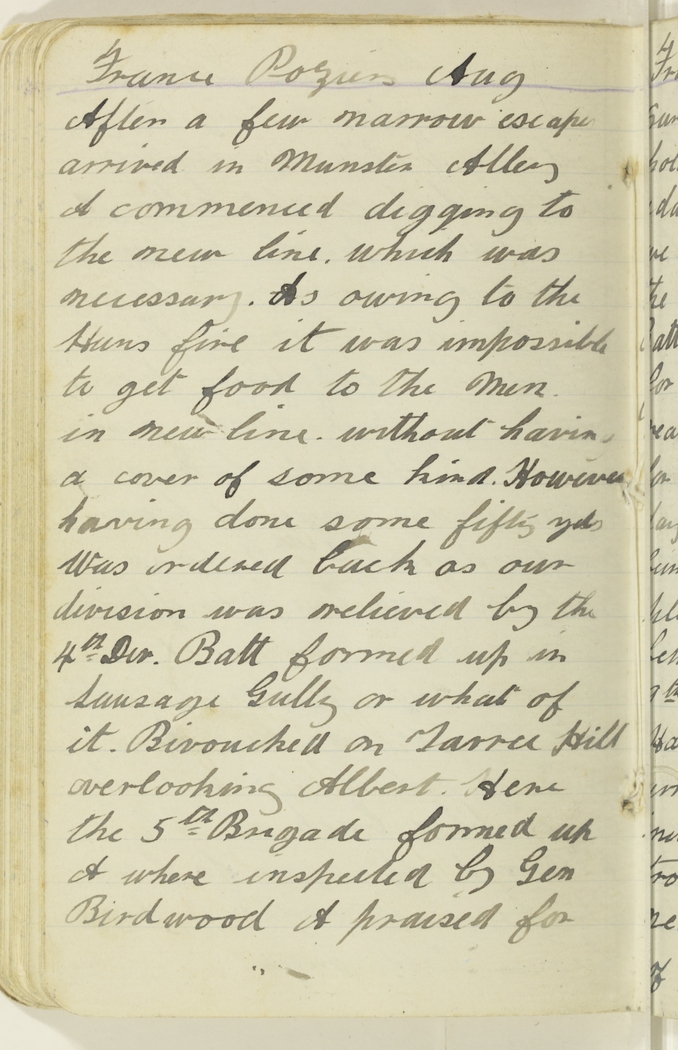 France Poziers Aug
After a few narrow escape
arrived in Munster Alley
& commenced digging to
the new line. which was
necessary. As owing to the
Huns fire it was impossible
to get food to the Men.
in new line. without having
a cover of some kind. However
having done some fifty yds
Was ordered back as our
division was relieved by the
4th Div. Batt formed up in
Sausage Gully or what of
it. Bivouched on Tarree Hill
overlooking Albert. Here
the 5th Brigade formed up
& where inspected by Gen
Birdwood & praised for